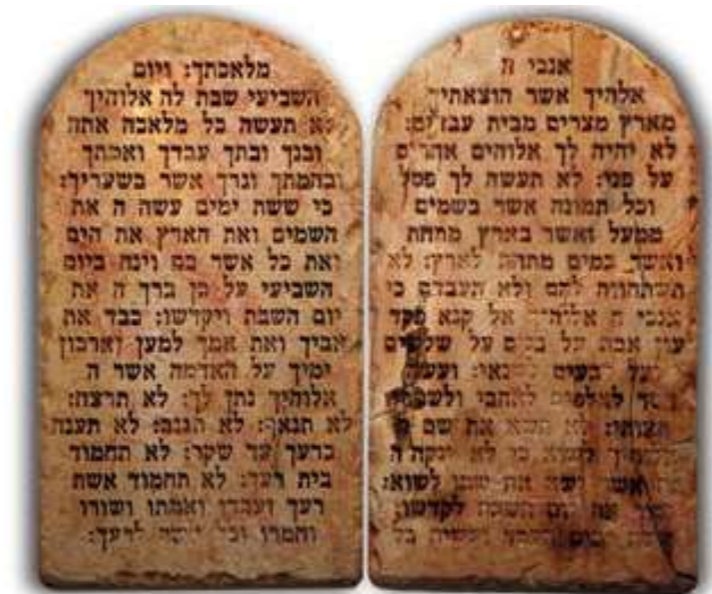 אנכי ה
אלהיך אשר הוצאתיך
מארץ מצרים מבית עבדים:
לא יהיה לך אלוהים אחרים
על פני: לא תעשה לך פסל
וכל תמונה אשר בשמים
ממעל ואשר בארץ מתחת
ואשר במים מתחת לארץ: לא
תשתחויה להם ולא תעבדם כי
אנכי ה אלהיך אל קנא פקד
עון אבת על בנים על שלשים
ועל רבעים לשנאי: ועשה
חסד לאלפים לאהבי
מצותי: לא תשא את שם
לשוא כי לא ינקה ה
את אשר ישא את שמו לשוא:
את יום השבת לקדשו:
ועשית כל
מלאכתך: ויום
השביעי שבת לה אלוהיך
לא תעשה כל מלאכה אתה
ובנך ובתך עבדך ואמתך
ובהמתך וגרך אשר בשעריך:
כי ששת ימים עשה ה את
השמים ואת הארץ את הים
ואת כל אשר בם וינח ביום
השביעי על כן ברך ה את
יום השבת ויקדשו: כבד את
אביך ואת אמך למען יארכון
ימיך על האדמה אשר ה
אלוהיך נתן לך: לא תרצח:
לא תנאף: לא תגנב: לא תענה
ברעך עד שקר: לא תחמוד
בית רעך: לא תחמוד אשת
רעך ועבדו ואמתו ושורו
וחמרו וכל אשר לרעך: